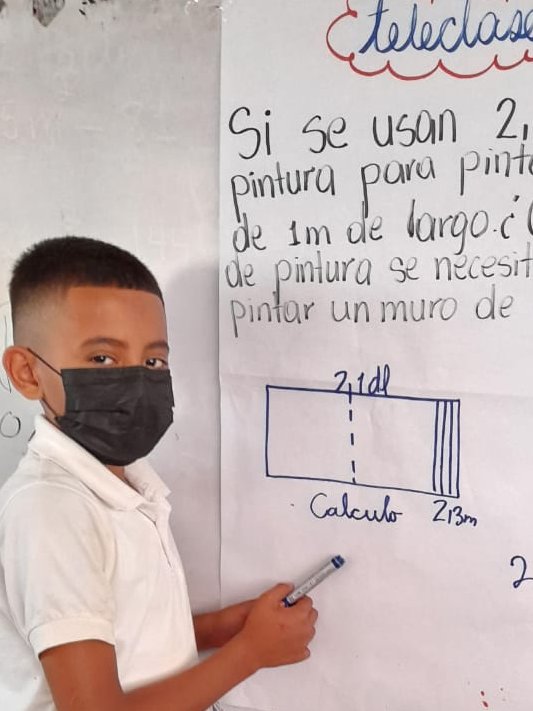 teleclase
Si se usan 2,
pintura para pint
de 1m de largo. ¿
de pintura se necesit
pintar un muro de
2,1dl
Calculo 2,3m
2